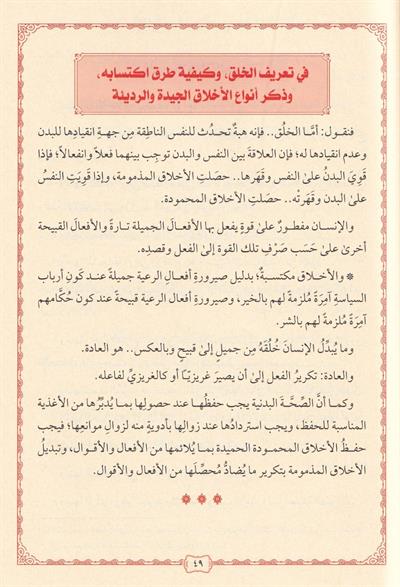 في تعريف الخلق، وكيفية طرق اكتسابه،
وذكر أنواع الأخلاق الجيدة والرديئة
فنقول: أمَّا الخلُق.. فإنه هبةٌ تحدُث للنفس الناطِقة مِن جهةِ انقيادِها للبدن
وعدم انقيادها له؛ فإن العلاقة بين النفس والبدن توجِب بينهما فعلاً وانفعالاً؛ فإذا
قَوِيَ البدنُ على النفس وقَهَرها.. حصَلتِ الأخلاق المذمومة، وإذا قَوِيَتِ النفسُ
على البدن وقَهَرتْه.. حصَلتِ الأخلاق المحمودة.
والإنسان مفطورٌ على قوةٍ يفعل بها الأفعالَ الجميلة تارةً والأفعالَ القبيحة
أخرىٰ علىٰ حَسَب صَرْفِ تلك القوة إلى الفعل وقصدِه.
* والأخلاق مكتسبةٌ؛ بدليل صيرورةِ أفعـالِ الرعية جميلةً عنـد كَونِ أربابِ
السياسةِ آمِرَةً مُلزمةً لهم بالخير، وصيرورةِ أفعال الرعية قبيحةً عند كون حُكَّامهم
آمِرَةً مُلزمةً لهم بالشر.
وما يُبدِّلُ الإنسانَ خُلُقَهُ مِن جميلٍ إلىٰ قبيحٍ وبالعكس.. هو العادة.
والعادة: تكريرُ الفعل إلى أن يصير غريزيّاً أو كالغريزيِّ لفاعله.
وكما أنَّ الصِّحَّةَ البدنية يجب حفظُها عند حصولِها بما يُدبِّرُها من الأغذية
المناسبة للحفظ، ويجب استردادُها عند زوالِها بأدويةٍ منه لزوال موانعِها؛ فيجب
حفظُ الأخلاق المحمودة الحميدة بما يُلائمها من الأفعال والأقوال، وتبديلُ
الأخلاق المذمومة بتكرير ما يُضادُّ مُحصِّلَها من الأفعال والأقوال.
* * *
٤٩